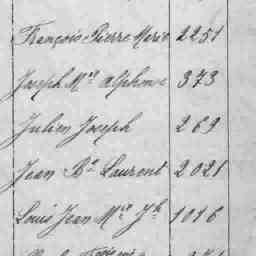 François Pierre Marie 2251
Joseph Mie Alphonse 373
Julien Joseph 269
Jean Bte Laurent 2021
Louis Jean Mie Jh 1016